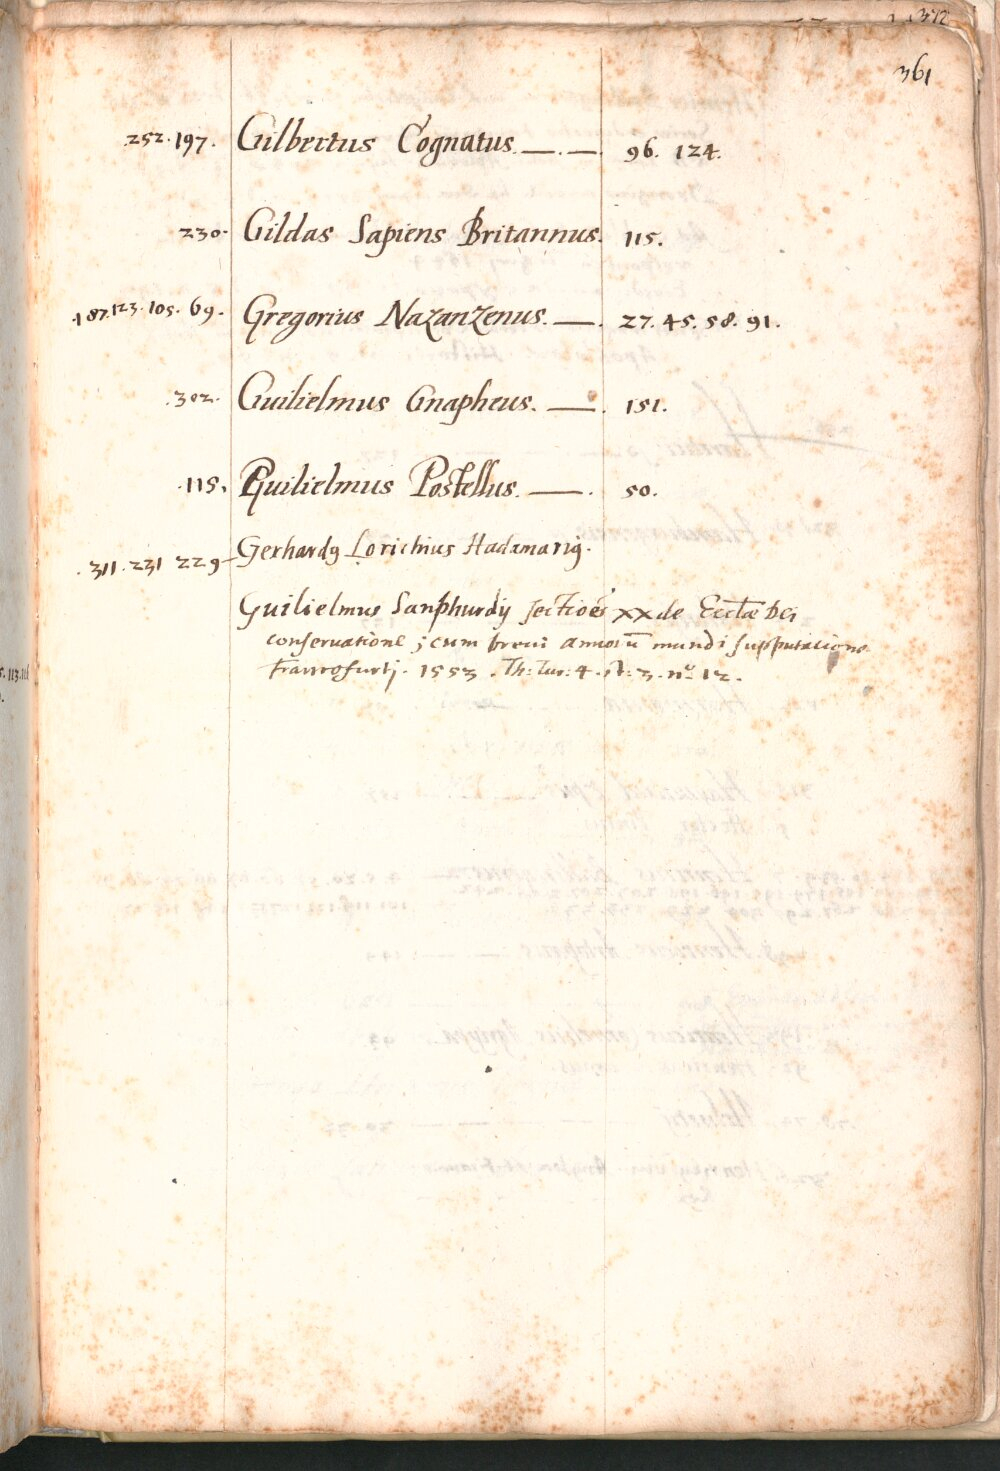 372
361
252. 197. Gilbertus Cognatus. 96. 124.
230. Gildas Sapiens Britannus. 115.
187. 123. 105. 69. Gregorius Nazanzenus. 27. 45. 58. 91.
302. Guilielmus Gnapheus. 151.
115. Guilielmus Postellus. 50.
311. 231 229 Gerhardg Lorichius Hadamarig.
Guilielmus Sanphurdij sectioes xx de Ecctae Dei
conservatione ; cum brevi annorū mundi supputatione
Francofurti. 1553. Th: Lur: 4. st: 3. no 12.